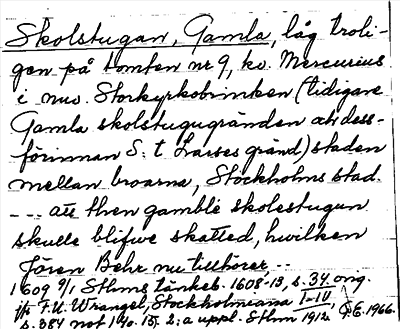 Skolstugan, Gamla, låg troli-
gen på tomten nr 9, kv. Mercurius
i nuv. Storkyrkobrinken (tidigare
Gamla skolstugugränden och dess-
förinnan S:t Larses gränd) staden
mellan broarna, Stockholms stad.
--- att then gamble skolestugun
skulle blifwe skatted, hwilken
Jören Behr nu tillhörer, --
1609 9/1 Sthms tänkeb. 1608-13, s. 34 orig.
jfr F.U. Wrangel, Stockholmiana I-IV,
s. 384 not 140. 15). 2:a uppl. Sthm 1912. G.E. 1966.